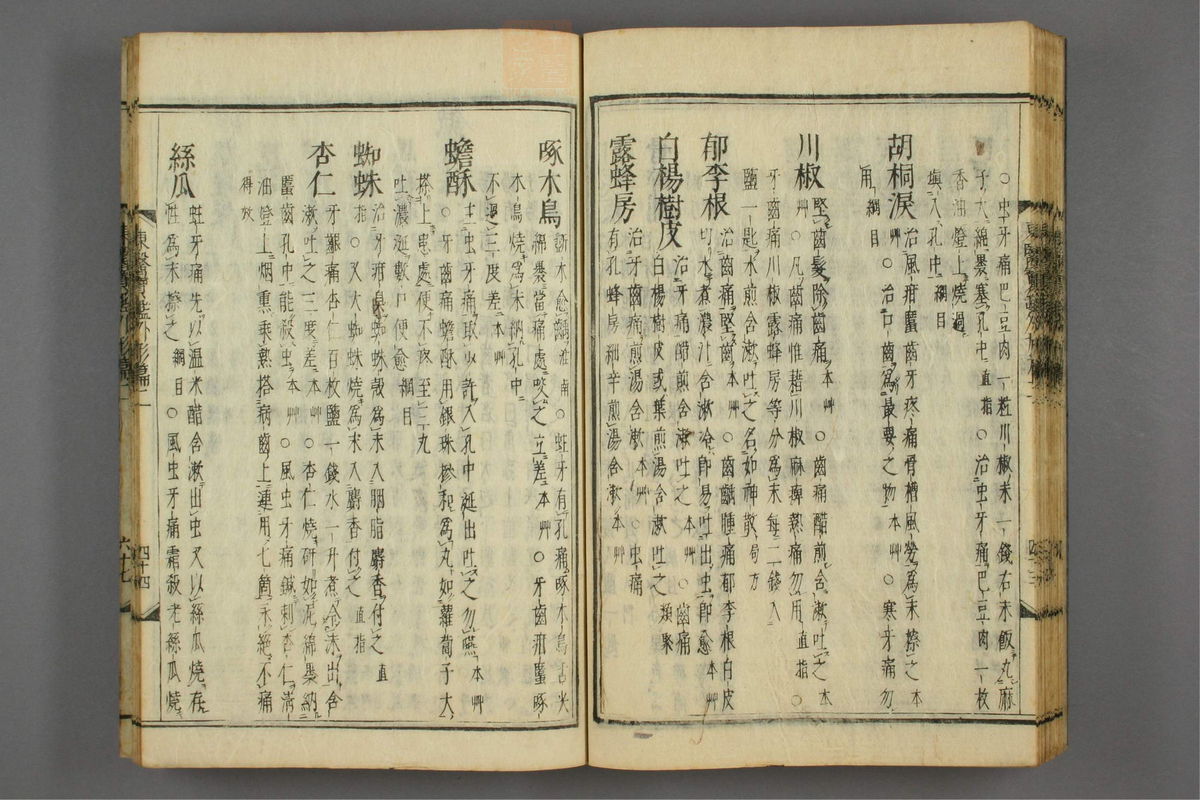 ○虫牙痛巴豆肉一粒川椒末一錢右末飯丸麻
子大綿裹塞孔中直指○治虫牙痛巴豆肉一枚
香油燈上燒過
塡入孔中綱目
胡桐淚治風疳䘌齒牙疼痛骨槽風勞爲末擦之本
艸○治口齒爲最要之物本艸○寒牙痛勿
用綱目
川椒堅齒髮除齒痛本艸○齒痛醋煎含漱吐之本
艸○凡齒痛惟藉川椒麻痺熱痛勿用直指○
牙齒痛川椒露蜂房等分爲末每二錢入
鹽一匙水煎含漱吐之名如神散局方
郁李根治齒痛堅齒本艸○齒齲腫痛郁李根白皮
切水煮濃汁含漱冷卽易吐出虫卽愈本艸
白楊樹皮治牙痛醋煎含漱吐之本艸○齒痛
白楊樹皮或葉煎湯含漱吐之類聚
露蜂房治牙齒痛煎湯含漱本艸○虫痛
有孔蜂房細辛煎湯含漱本艸
啄木鳥斲木愈齲淮南○蛀牙有孔痛啄木鳥舌尖
綿裹當痛處咬之立差本艸○牙齒疳䘌啄
木鳥燒爲末納孔中
不過三度差本艸
蟾酥主虫牙痛取少許入孔中涎出吐之勿嚥本艸
○牙齒痛蟾酥用銀珠摻和爲丸如蘿蔔子大
搽上患處便不疼至三丸
吐濃涎數口便愈綱目
蜘蛛治牙疳臭蜘蛛殼爲末入胭脂麝香付之直
指○又大蜘蛛燒爲末入麝香付之直指
杏仁牙齦痛杏仁百枚鹽一錢水一升煮令沫出含
漱吐之三度差本艸○杏仁燒研如泥綿裹納
䘌齒孔中能殺虫本艸○風虫牙痛鍼刺杏仁滿
油燈上烟熏乘熱搭病齒上連用七箇永絕不痛
得效
絲瓜蛀牙痛先以溫米醋含漱出虫又以絲瓜燒存
性爲末擦之綱目○風虫牙痛霜殺老絲瓜燒
東醫寶鑑外形篇二
四十四